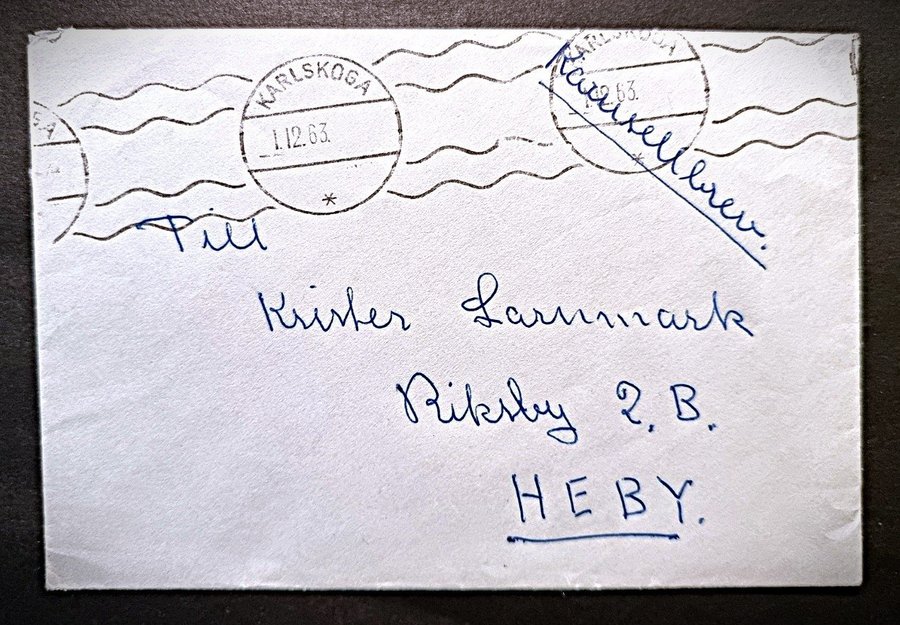 KARLSKOGA
1.12.63.
KARLSKOGA
1.12.63.
Karusellbrev.
Till
Krister Larnmark
Riksby 2. B.
HEBY.